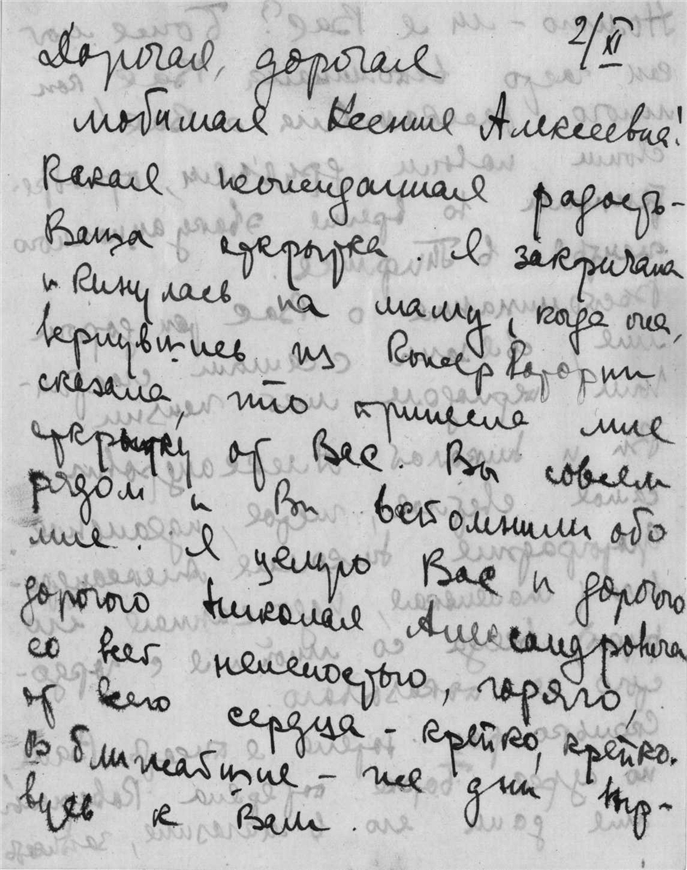 2/XI
Дорогая, дорогая
любимая Ксения Алексеевна!
Какая неожиданная радость -
Ваша открытка. Я закричала
и кинулась на маму, когда она,
вернувшись из Консерватории
сказала, что принесла мне
открытку от Вас. Вы совсем
рядом и Вы вспомнили обо
мне. Я целую Вас и дорогого
дорогого Николая Александровича
со всей нежностью, горячо,
от всего сердца - крепко, крепко.
В ближайшие - же дни
к Вам.